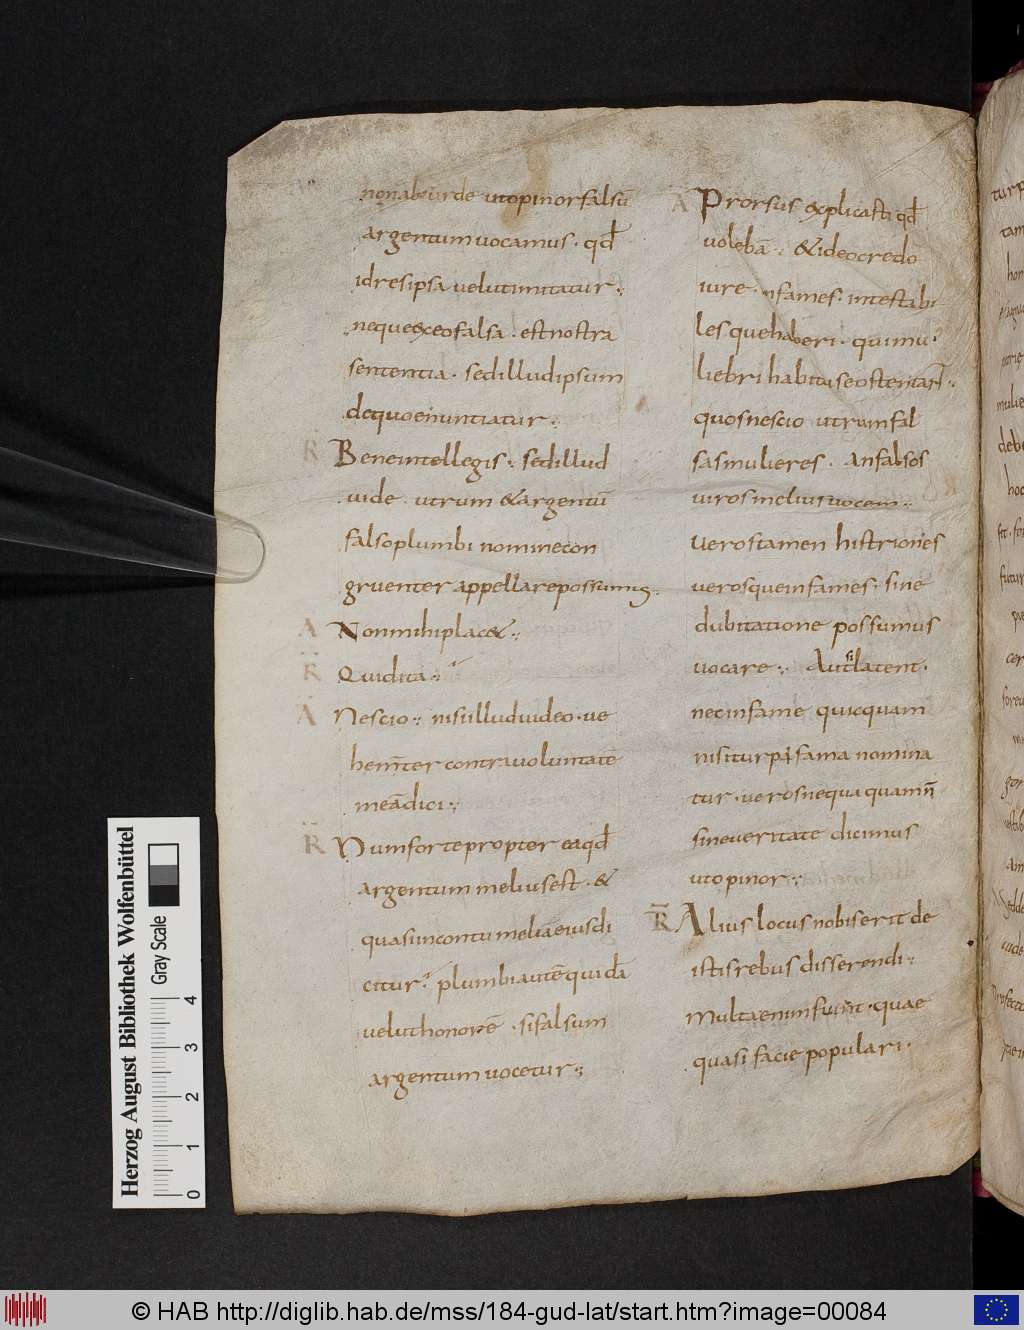 nonabsurde utopinorfalsū
argentumuocamus · qđ
idresipsa uelutimitatur ·,
nequeexeofalsa · estnostra
sententia · sedilludipsum
dequoenuntiatur ·,
R Beneintellegis ·, sedillud
uide · utrum &argentū
falsoplumbi nominecon
gruenter appellarepossumus ·
A Nonmihiplac& ·,
R Quidita ·
A Nescio ·, nisiilluduideo · ue
hem̄ter contrauoluntatē
meādici ·,
R Numforte propter eaqđ
argentum meliusest · &
quasiincontumeliāeiusdi
citur · plumbiautēquidā
ueluthonorē · sifalsum
argentum uocetur ·,
A Prorsus explicasti qđ
uolebā ·, &ideocredo
iure · infames · intestabi
lesquehaberi · quimu
liebri habituseostentant ·,
quosnescio utrumfal
sasmulieres · anfalsos
uirosmeliusuocem ·,
Uerostamen histriones
uerosqueinfames · sine
dubitatione possumus
uocare ·, Autsilatent ·
necinfame quicquam
nisiturpifama nomina
tur · uerosnequaquamn̄
sineueritate dicimus
utopinor ·,
R Alius locus nobiserit de
istisrebus disserendi ·,
Multaenimfiunt · quae
quasi facie populari ·
Herzog August Bibliothek Wolfenbüttel
Gray Scale
0 1 2 3 4
© HAB http://diglib.hab.de/mss/184-gud-lat/start.htm?image=00084